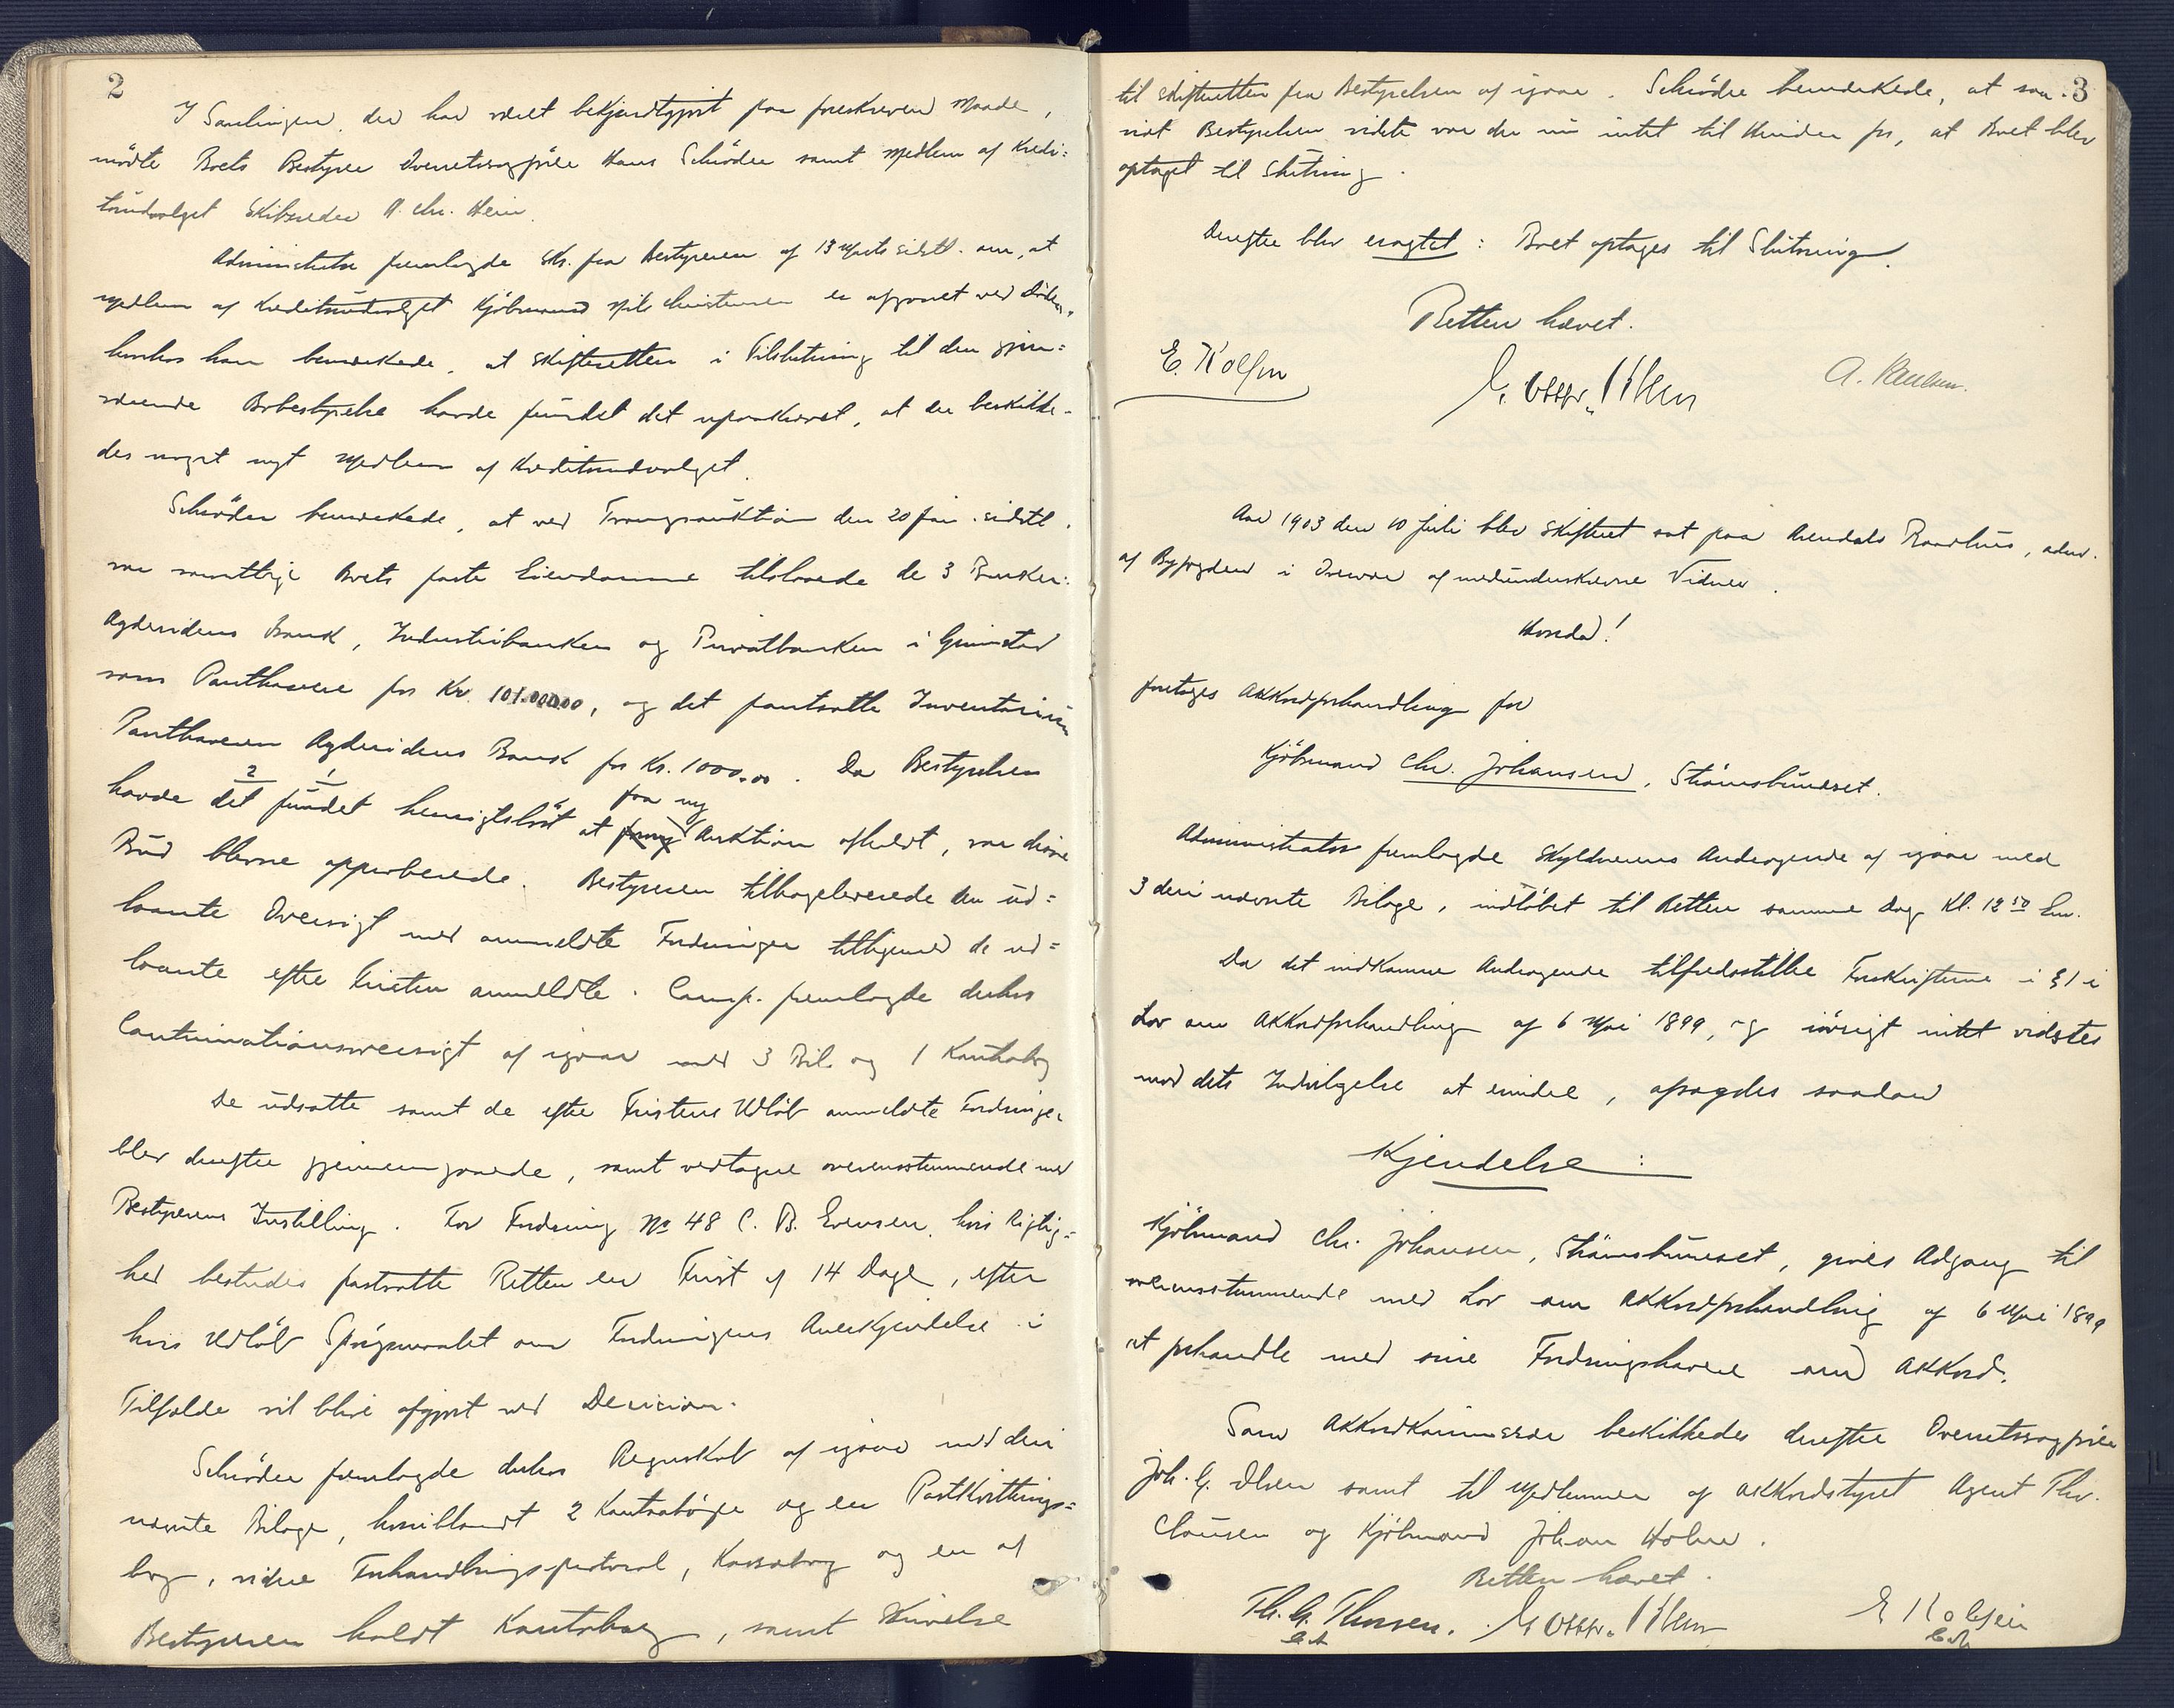 2
I Samlingen, der har været bekjendtgjort paa foreskreven Maade,
mødte Boets Bestyrer Overretssagfører Hans Schrøder samt Medlem af Kredi=
torudvalget Skibsreder A. Chr. Hein.
Administrator fremlagde Skr. fra Bestyreren af 13 Marts sidstl. om, at
Medlem af Kreditorudvalget Kjøbmand Nils Christensen er afgaaet ved Døden,
hvorhos han bemærkede, at Skifteretten i Tilslutning til den gjen=
værende Bobestyrelse havde fundet det upaakrævet, at der beskikke-
des noget nyt Medlem af Kreditorudvalget.
Schrøder bemærkede, at ved Tvangsauktion den 20 Jan. sidstl.
var samtlige Boets faste Eiendomme tilslaaede de 3 Banker:
Agdesidens Bank, Industribanken og Privatbanken i Grimstad
som Panthavere for Kr. 101.000.00, og det pantsatte Inventarium
Panthaveren Agdesidens Bank for Kr. 1000.00. Da Bestyrelsen
havde det fundet hensigtsløst at faa ny Auktion afholdt, var disse
Bud blevne approberede. Bestyreren tilbageleverede den ud=
laante Oversigt med anmeldte Fordringer tilligemed de ud=
laante efter Fristen anmeldte. Comp. fremlagde derhos
Continuationsoversigt af igaar med 3 Bil. og 1 Kontrabog
De udsatte samt de efter Fristens Udløb anmeldte Fordringer
blev derefter gjennemgaaede, samt vedtagne overensstemmende med
Bestyrerens Indstilling. For Fordring No 48 C. B. Evensen, hvis Rigtig=
hed bestrides fastsatte Retten en Frist af 14 Dage, efter
hvis Udløb Spørgsmaalet om Fordringens Anerkjendelse i
Tilfælde vil blive afgjort ved Decision.
Schrøder fremlagde derhos Regnskab af igaar med deri
nævnte Bilage, hvoriblandt 2 Kontrabøger og en Postkvitterings=
bog, videre Forhandlingsprotocol, Kassabog og en af
Bestyreren holdt Kontobog, samt Skrivelse
3
til Skifteretten fra Bestyrelsen af igaar. Schrøder bemærkede, at saa-
vidt Bestyrelsen vidste var der nu intet til Hinder for, at Boet blev
optaget til Slutning.
Derefter blev eragtet: Boet optages til Slutning.
Retten hævet.
E. Rolfsen
A. Paulsen.
Aar 1903 den 10 Juli blev Skifteret sat paa Arendals Raadhus, adm.
af Byfogden i Overvær af medunderskrevne Vidner.
Hvorda!
foretages Akkordforhandling for
Kjøbmand Chr. Johansen, Strømsbuneset.
Administrator fremlagde Skyldnerens Andragende af igaar med
3 deri nævnte Bilage, indløbet til Retten samme Dag Kl. 12 50 Em.
Da det indkomne Andragende tilfredsstiller Forskrifterne i § 1 i
Lov om Akkordforhandling af 6 Mai 1899, og iøvrigt intet vidstes
mod dets Indvilgelse at erindre, afsagdes saadan
Kjendelse:
Kjøbmand Chr. Johansen, Strømsbuneset, gives Adgang til
overensstemmende med Lov om Akkordforhandling af 6 Mai 1899
at forhandle med sine Fordringshavere om Akkord.
Som Akkordkommissær beskikkedes derefter Overretssagfører
Joh. G. Olsen samt til Medlemmer af Akkordstyret Agent Thv.
Clausen og Kjøbmand Johan Holm.
Retten hævet.
Th. G. Thorsen.
E Rolfsen